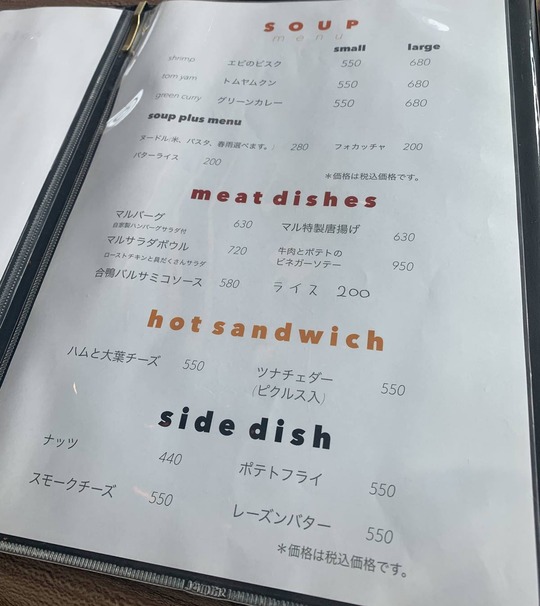 SOUP
menu
small large
shrimp エビのビスク 550 680
tom yam トムヤムクン 550 680
green curry グリーンカレー 550 680
soup plus menu
ヌードル(米、パスタ、春雨選べます。) 280 フォカッチャ 200
バターライス 200
＊価格は税込価格です。
meat dishes
マルバーグ 630 マル特製唐揚げ 630
自家製ハンバーグサラダ付
マルサラダボウル 720 牛肉とポテトの
ビネガーソテー 950
ローストチキンと具だくさんサラダ
合鴨バルサミコソース 580 ライス 200
hot sandwich
ハムと大葉チーズ 550 ツナチェダー
(ピクルス入) 550
side dish
ナッツ 440 ポテトフライ 550
スモークチーズ 550 レーズンバター 550
＊価格は税込価格です。